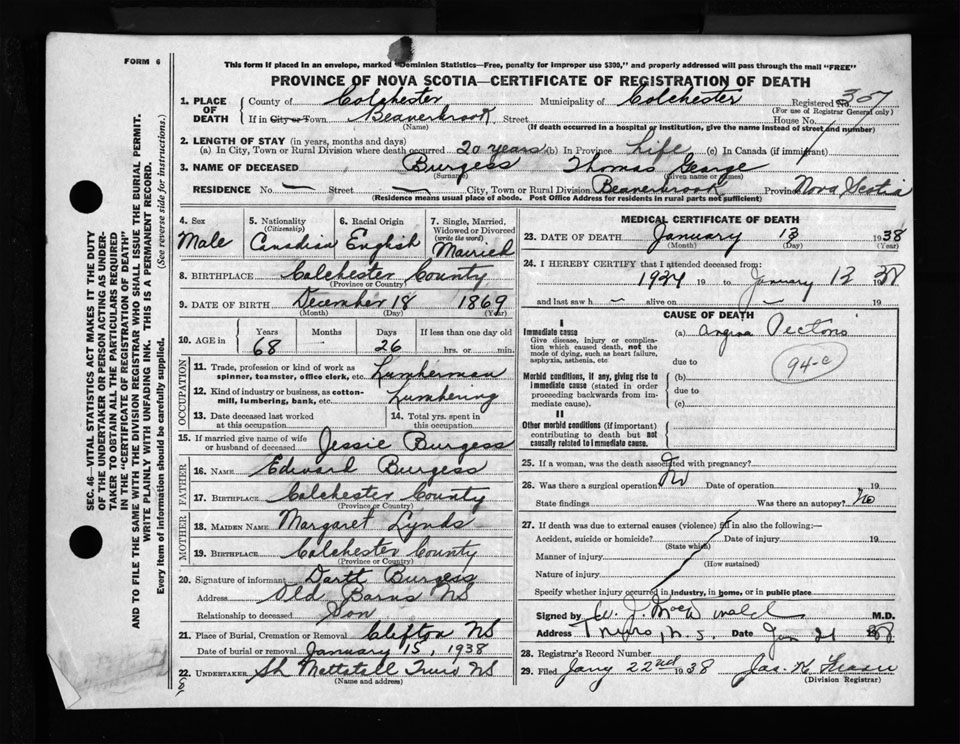 FORM 6
This form if placed in an envelope, marked "Dominion Statistics—Free, penalty for improper use $300," and properly addressed will pass through the mail "FREE"
PROVINCE OF NOVA SCOTIA—CERTIFICATE OF REGISTRATION OF DEATH
1. PLACE OF DEATH County of Colchester Municipality of Colchester Registered No. 357
(For use of Registrar General only)
If in City or Town Beaverbrook Street House No.
(Name) (If death occurred in a hospital or institution, give the name instead of street and number)
2. LENGTH OF STAY (in years, months and days)
(a) In City, Town or Rural Division where death occurred 20 years (b) In Province Life (c) In Canada (if immigrant)
3. NAME OF DECEASED Burgess Thomas George
(Surname) (Given name or names)
RESIDENCE No. — Street — City, Town or Rural Division Beaverbrook Province Nova Scotia
(Residence means usual place of abode. Post Office Address for residents in rural parts not sufficient)
4. Sex
Male
5. Nationality
(Citizenship)
Canadian
6. Racial Origin
English
7. Single, Married, Widowed or Divorced
(write the word)
Married
8. BIRTHPLACE Colchester County
(Province or Country)
9. DATE OF BIRTH December 18 1869
(Month) (Day) (Year)
10. AGE in Years Months Days If less than one day old
68 26 hrs. or min.
OCCUPATION
11. Trade, profession or kind of work as spinner, teamster, office clerk, etc. Lumberman
12. Kind of industry or business, as cotton-mill, lumbering, bank, etc. Lumbering
13. Date deceased last worked at this occupation
14. Total yrs. spent in this occupation
15. If married give name of wife or husband of deceased Jessie Burgess
FATHER
16. NAME Edward Burgess
17. BIRTHPLACE Colchester County
(Province or Country)
MOTHER
18. MAIDEN NAME Margaret Lynds
19. BIRTHPLACE Colchester County
(Province or Country)
20. Signature of informant Dartt Burgess
Address Old Barns NS
Relationship to deceased Son
21. Place of Burial, Cremation or Removal Clifton NS
Date of burial or removal January 15, 1938
22. UNDERTAKER Mattatall NS
(Name and address)
MEDICAL CERTIFICATE OF DEATH
23. DATE OF DEATH January 13 1938
(Month) (Day) (Year)
24. I HEREBY CERTIFY that I attended deceased from:
1934 19 to January 13 38
and last saw h — alive on — 19
CAUSE OF DEATH
I
Immediate cause
Give disease, injury or complication which caused death, not the mode of dying, such as heart failure, asphyxia, asthenia, etc
(a) Angina Pectoris
due to
94-c
Morbid conditions, if any, giving rise to immediate cause (stated in order proceeding backwards from immediate cause).
(b)
due to
(c)
II
Other morbid conditions (if important) contributing to death but not causally related to immediate cause.
25. If a woman, was the death associated with pregnancy?
26. Was there a surgical operation No Date of operation 19
State findings Was there an autopsy? No
27. If death was due to external causes (violence) fill in also the following:—
Accident, suicide or homicide? Date of injury 19
(State which)
Manner of injury
(How sustained)
Nature of injury
Specify whether injury occurred in industry, in home, or in public place
Signed by M.D.
Address Truro, N.S. Date Jan 21 1938
28. Registrar's Record Number
29. Filed Jany 22nd 1938 Jas. K.
(Division Registrar)
SEC. 46—VITAL STATISTICS ACT MAKES IT THE DUTY
OF THE UNDERTAKER OR PERSON ACTING AS UNDER-
TAKER TO OBTAIN ALL THE PARTICULARS REQUIRED
IN THE "CERTIFICATE OF REGISTRATION OF DEATH"
AND TO FILE THE SAME WITH THE DIVISION REGISTRAR WHO SHALL ISSUE THE BURIAL PERMIT.
WRITE PLAINLY WITH UNFADING INK. THIS IS A PERMANENT RECORD.
Every item of information should be carefully supplied. (See reverse side for instructions.)